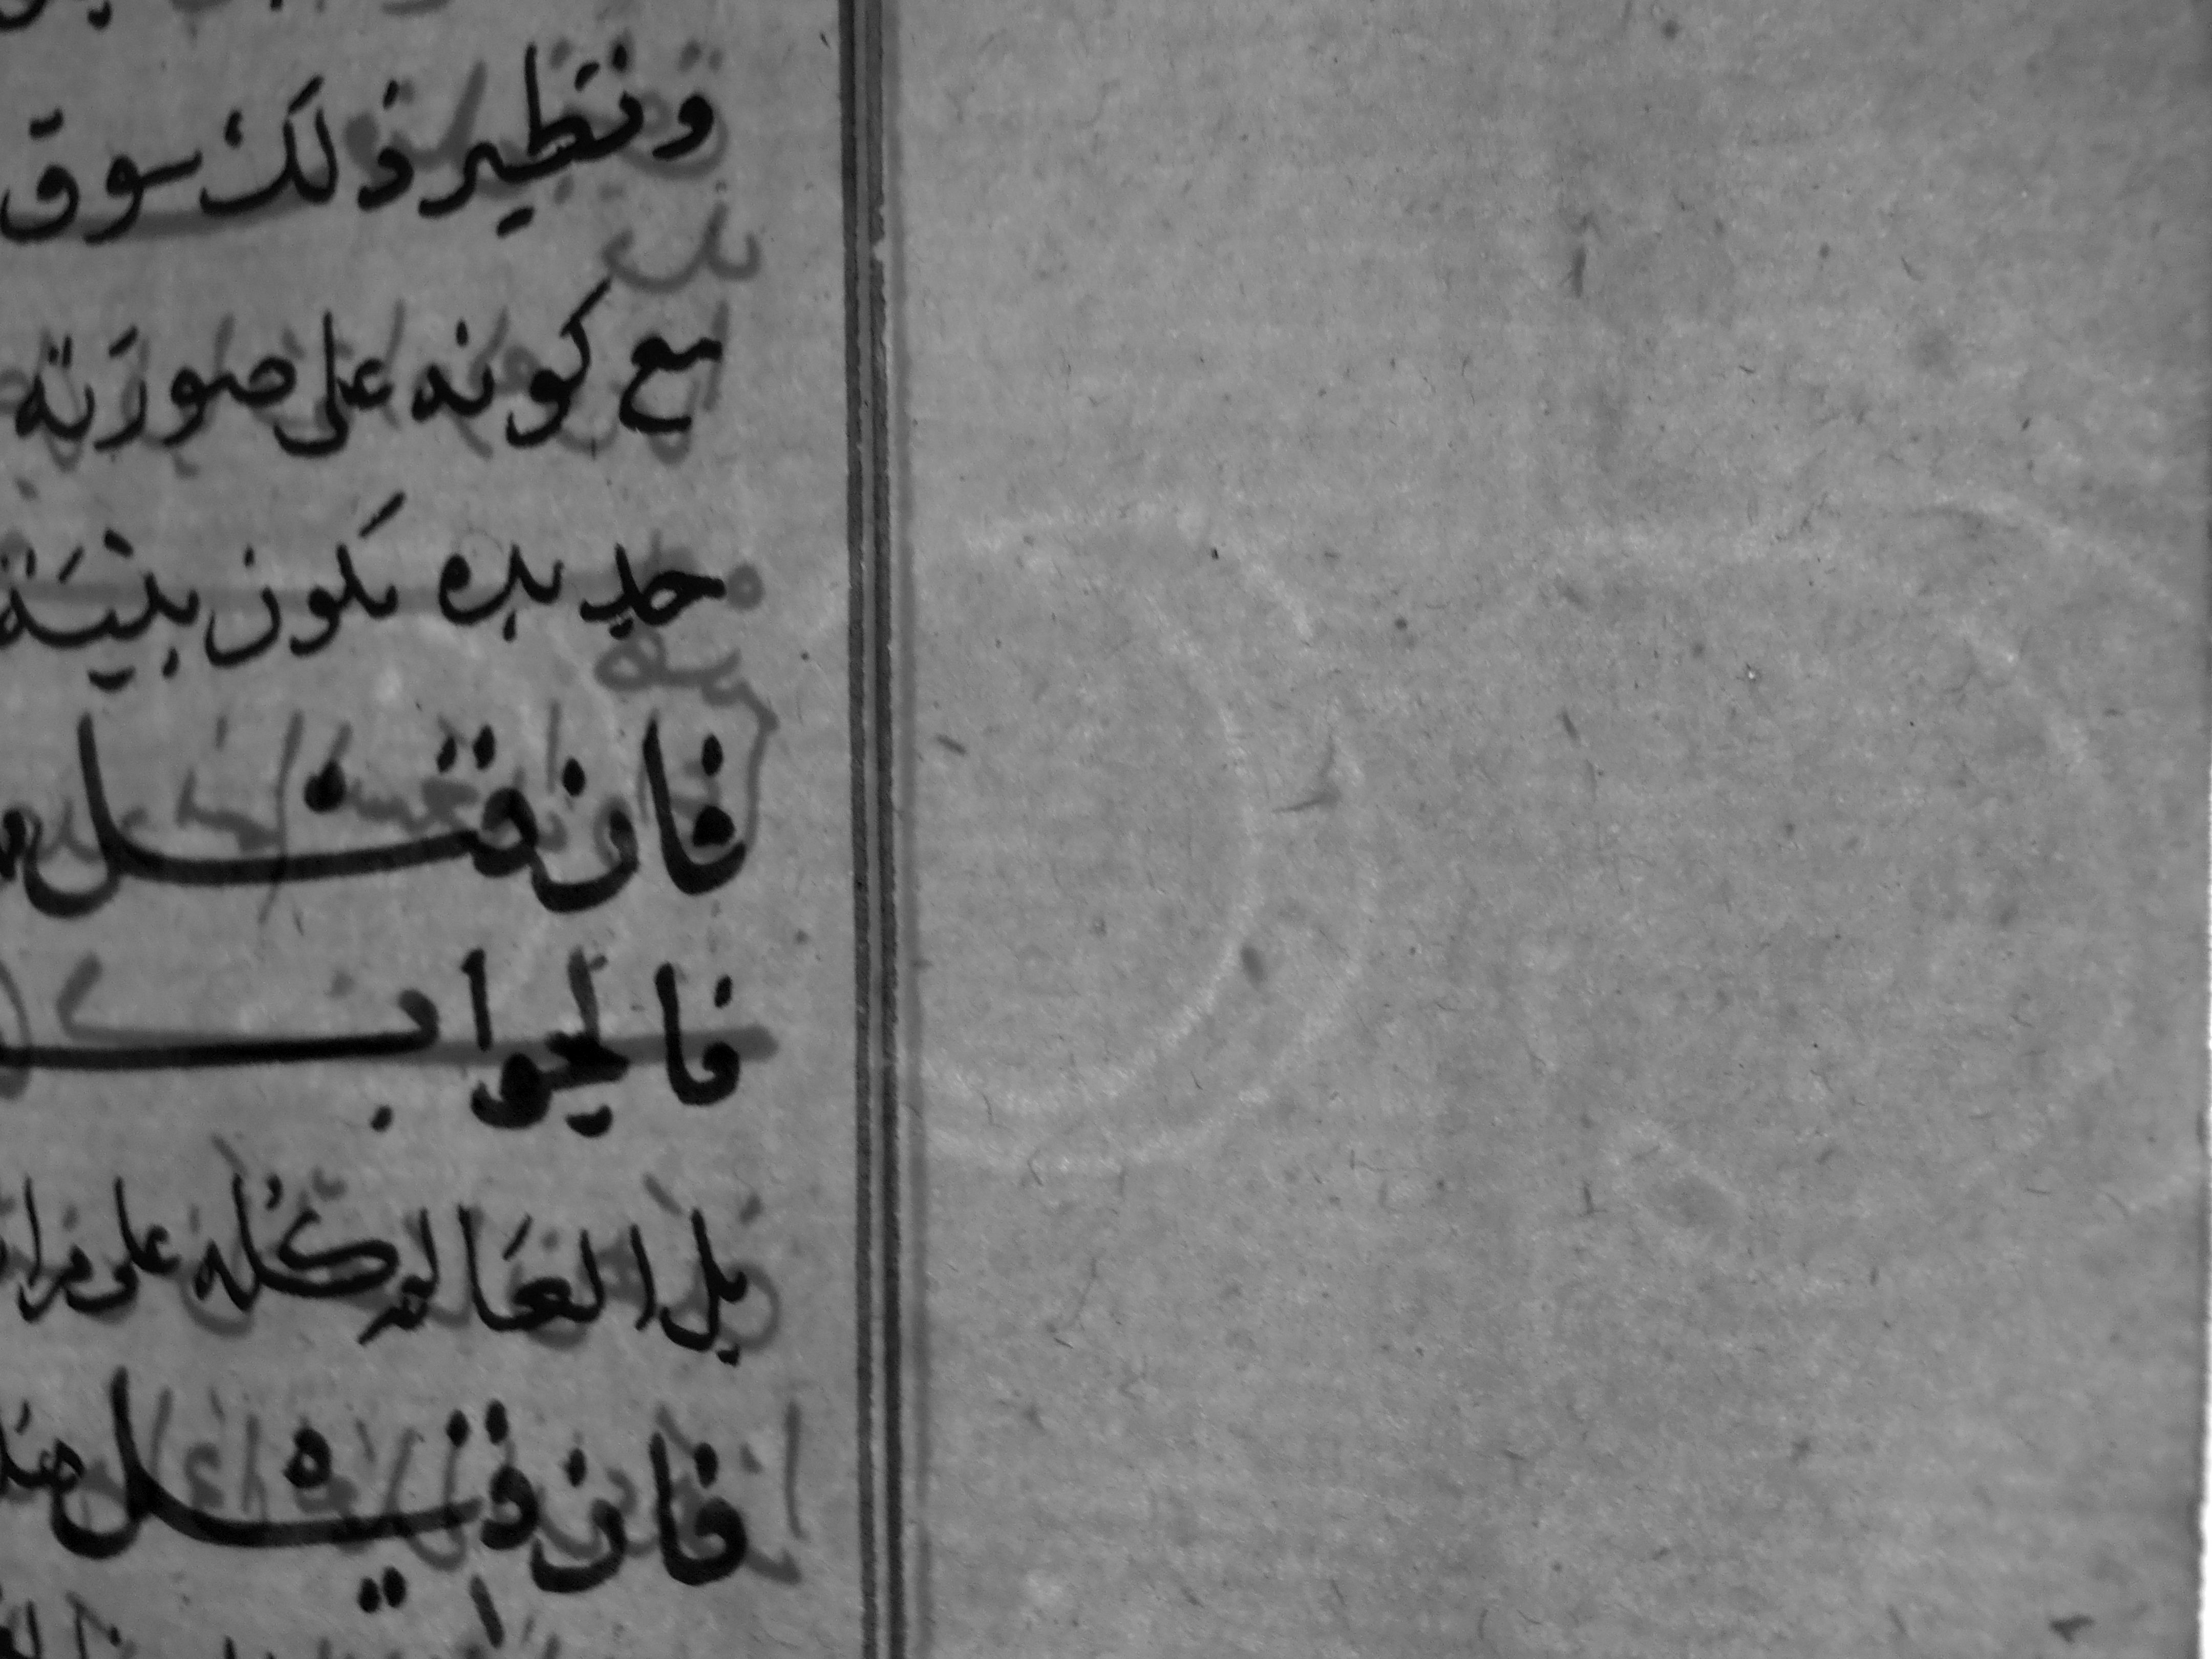 ونظير ذلك سوق
مع كونه على صورته
حديده يكون بنية
فان قيل
فالجواب
بل العالم كله على
فان قيل